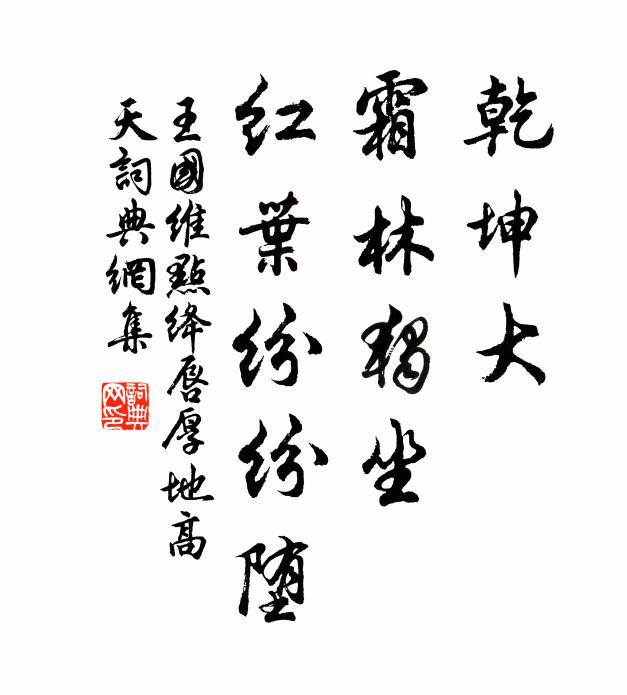 乾坤大
霜林獨坐
紅葉紛紛堕
王國維點绛唇厚地高
天詞典網集
詞典
网印